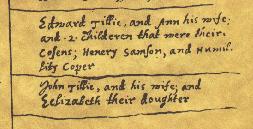 Edward Tillie, and Ann his wife;
and .2. Childeren that were their
Cosens; Henery Samson, and Humil-
lity Coper
John Tillie, and his wife; and
Eelizabeth their doughter